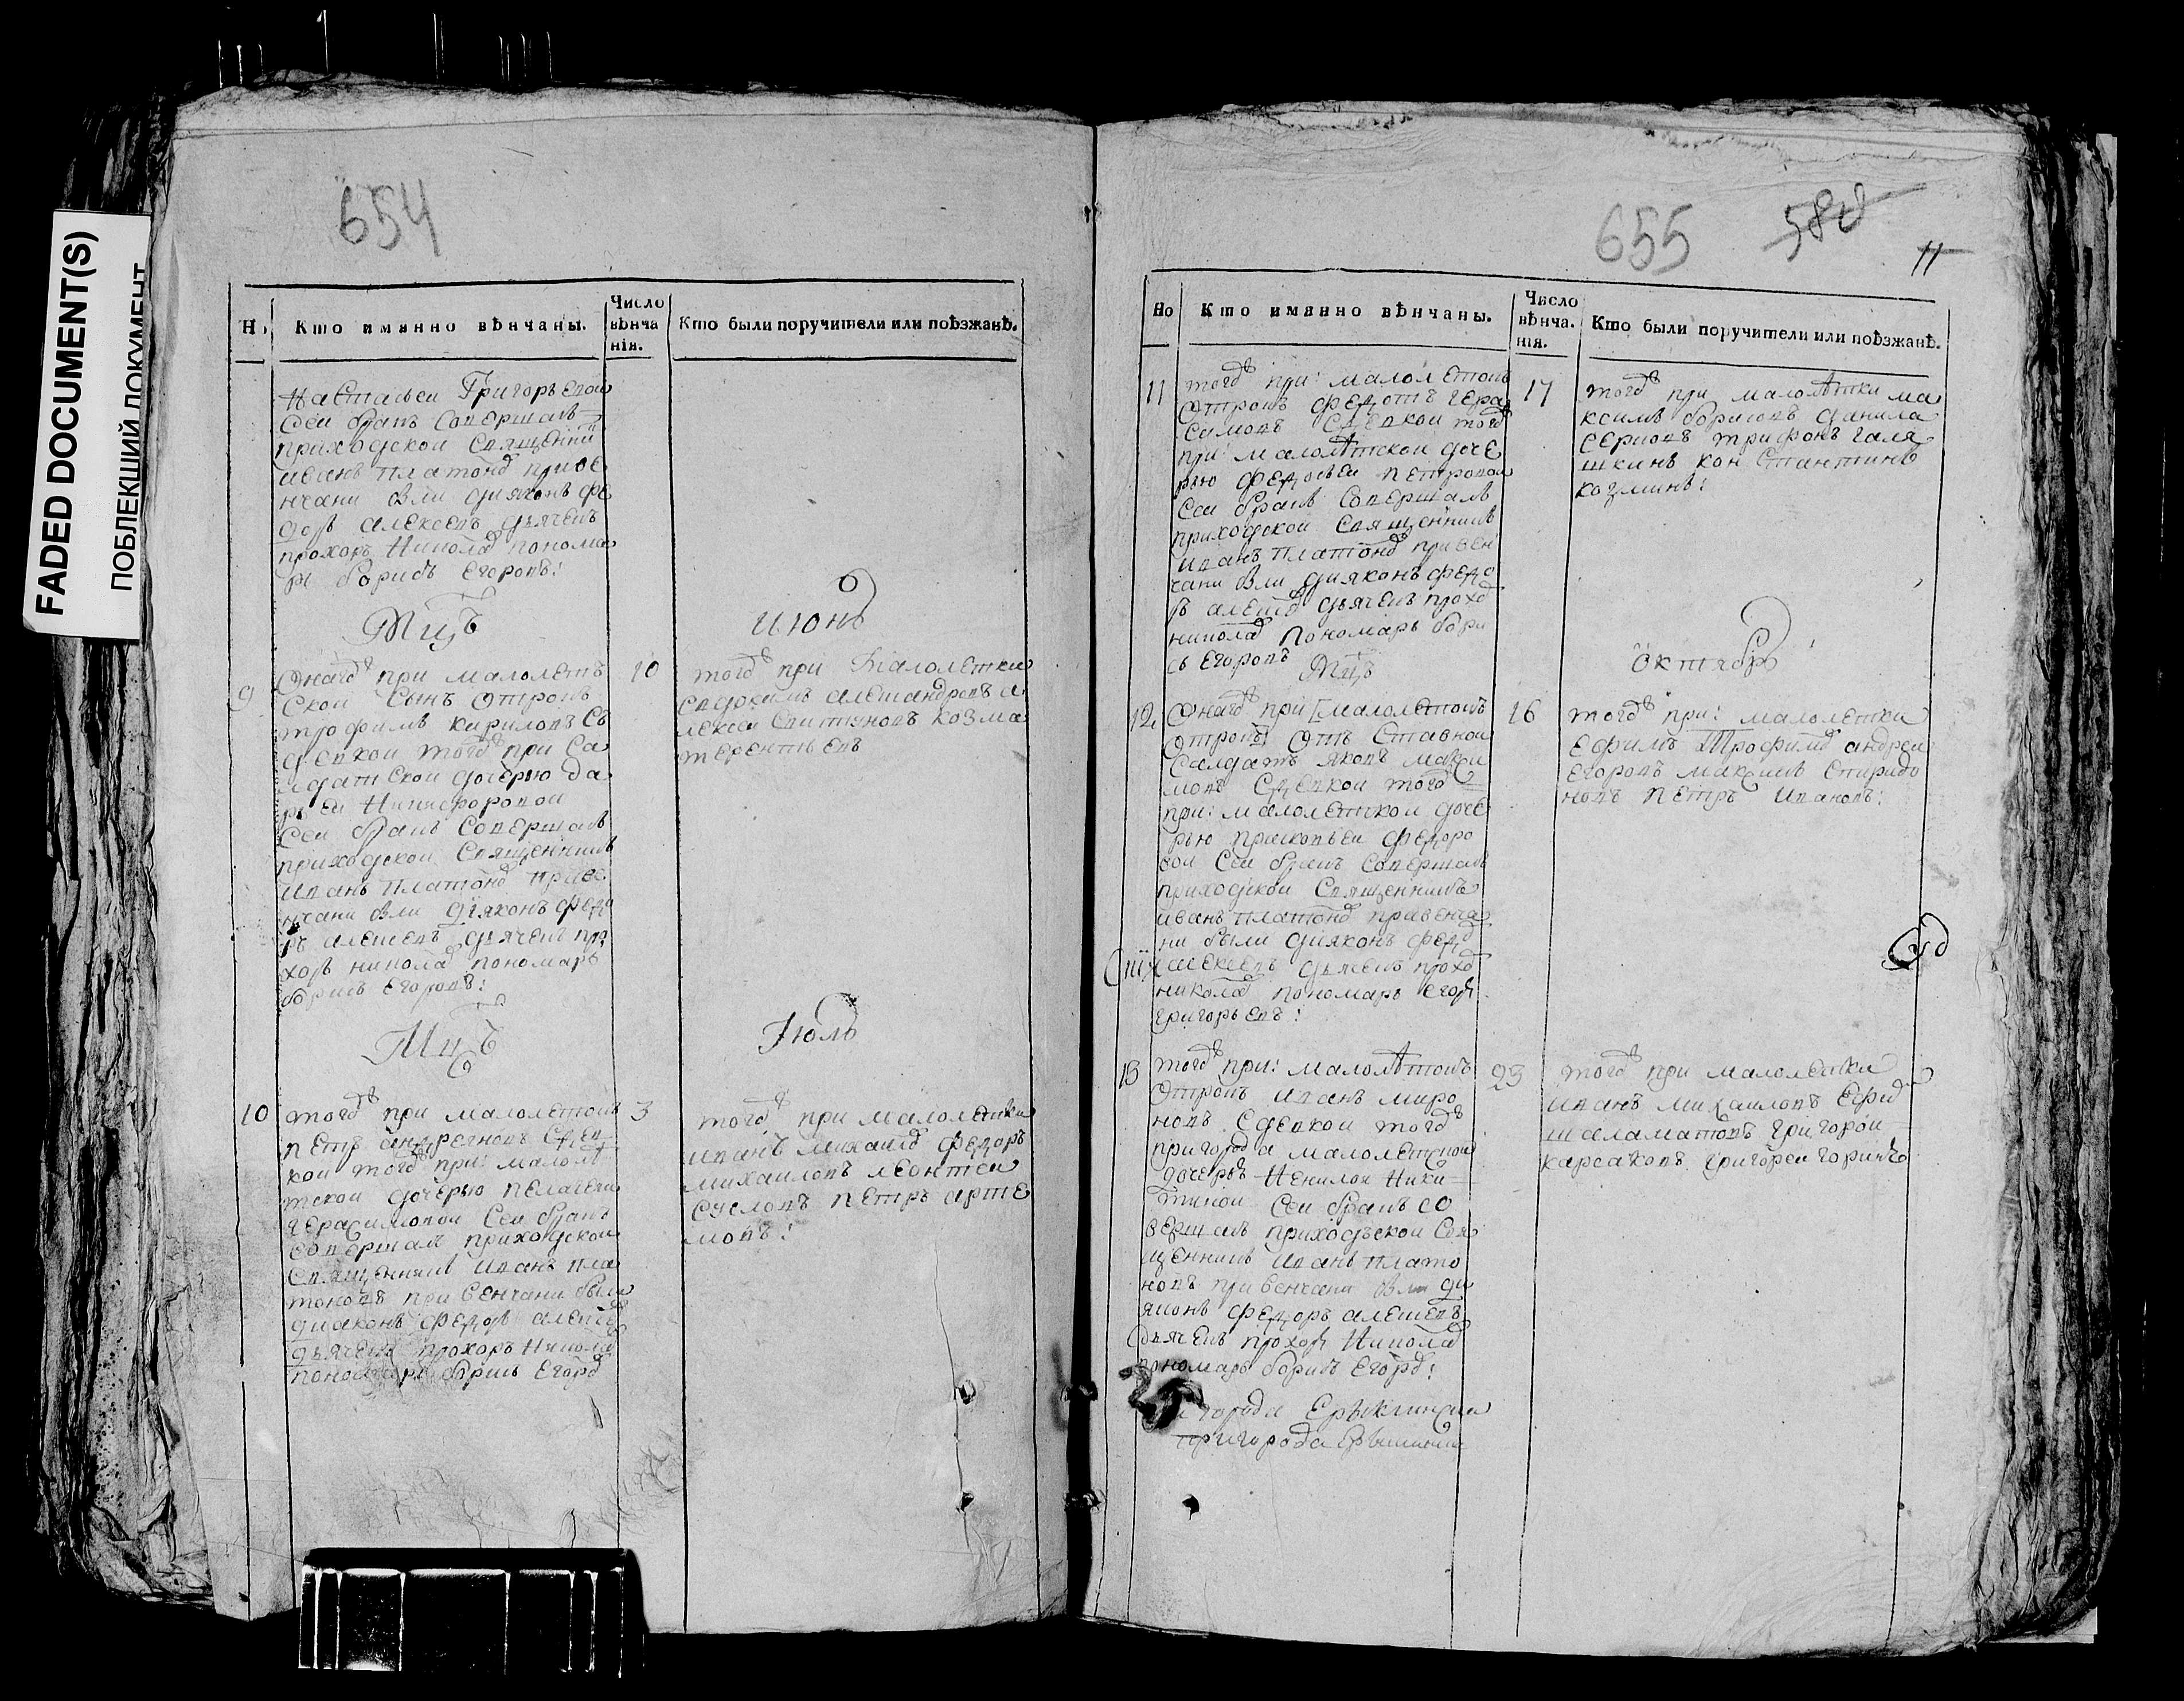 FADED DOCUMENT(S)
ПОБЛЕКШИЙ ДОКУМЕНТ
654
Но
Кто имянно вѣнчаны.
Число
вѣнча
нія.
Кто были поручители или поѣзжанѣ.
Настасьеи Григорьевои
Сеи бракъ Совершалъ
приходской Священни
иванъ Платонов приве
нчани были дияконъ фе
доръ алексеевъ дьячекъ
прохоръ Никола понома
рь борисъ Егоровъ:
Мцъ
июнь
9
Оног при малолетъ
ской Сынъ Отрокъ
трофимъ кириловъ Съ
девкой тогож при Са
лдатской дочерью да
рьеи Никифоровои
Сеи бракъ Совершалъ
приходской Священникъ
иванъ Платонов приве
нчани были дияконъ федо
ръ алексеевъ дьячекъ про
хоръ никола пономарь
борисъ Егоровъ:
10
тогож при Малолетки
Евдокимъ александровъ а
лексеи Свитуновъ козма
терентьевъ
Мцъ
Июль
10
тогож при малолетокъ
петръ андреяновъ Сдев
кой тогож при: малолѣ
тской дочерью пелагеии
герасимовои Сеи бракъ
Совершалъ приходской
Священникъ иванъ пла
тоновъ при венчани были
дияконъ федоръ алексеев
дьячекъ прохоръ Никола
пономарь борисъ Егоров
3
тогож при малолетки
иванъ михаилов федоръ
михаиловъ леонтеи
Сусловъ петръ арте
мовъ:
655
580
11
Но
Кто имянно вѣнчаны.
Число
вѣнча.
нія.
Кто были поручители или поѣзжанѣ.
11
тогож при: малолетокъ
Отрокъ федотъ гера
симовъ Сдевкой тогож
при: малолѣтской доче
рью федосьеи петровои
Сеи бракъ Совершалъ
приходской Священникъ
иванъ Платонов при вен
чани были дияконъ федо
ръ алексеев дьячекъ прохо
никола пономарь бори
съ Егоровъ
17
тогож при малолѣтки ма
ксимъ борисовъ данила
Серковъ трифонъ галя
шкинъ константинъ
козминъ:
Мцъ
Октябрь
12
Оног при [малолетокъ
Отрокъ] Отъ Ставной
Салдатъ яковъ макси
мовъ Сдевкой тогож
при: малолетской доче
рью прасковьеи федоро
вои Сеи бракъ Совершалъ
приходской Священникъ
иванъ Платонов при венча
ни были дияконъ федор
алексеевъ дьячекъ прохор
николаев пономарь егоръ
григорьевъ:
16
тогож при: малолетки
Ефимъ Трофимов андреи
Егоровъ максимъ Спиридо
новъ петръ ивановъ:
13
тогож при: малолѣтокъ
Отрокъ иванъ миро
новъ Сдевкой тогож
пригорода малолетской
дочерью Ненилои Ники
тиной Сеи бракъ со
вершалъ приходьской Свя
щенникъ иванъ плато
новъ при венчани были ди
яконъ федоръ алексеевъ
дьячекъ прохоръ Никола
пономарь борисъ Егоров:
23
тогож при малолетки
иванъ михаиловъ Ефим
шаламатовъ григорои
карсаковъ григореи горинъ
города Ерыклинска
пригорода Ерыклинска